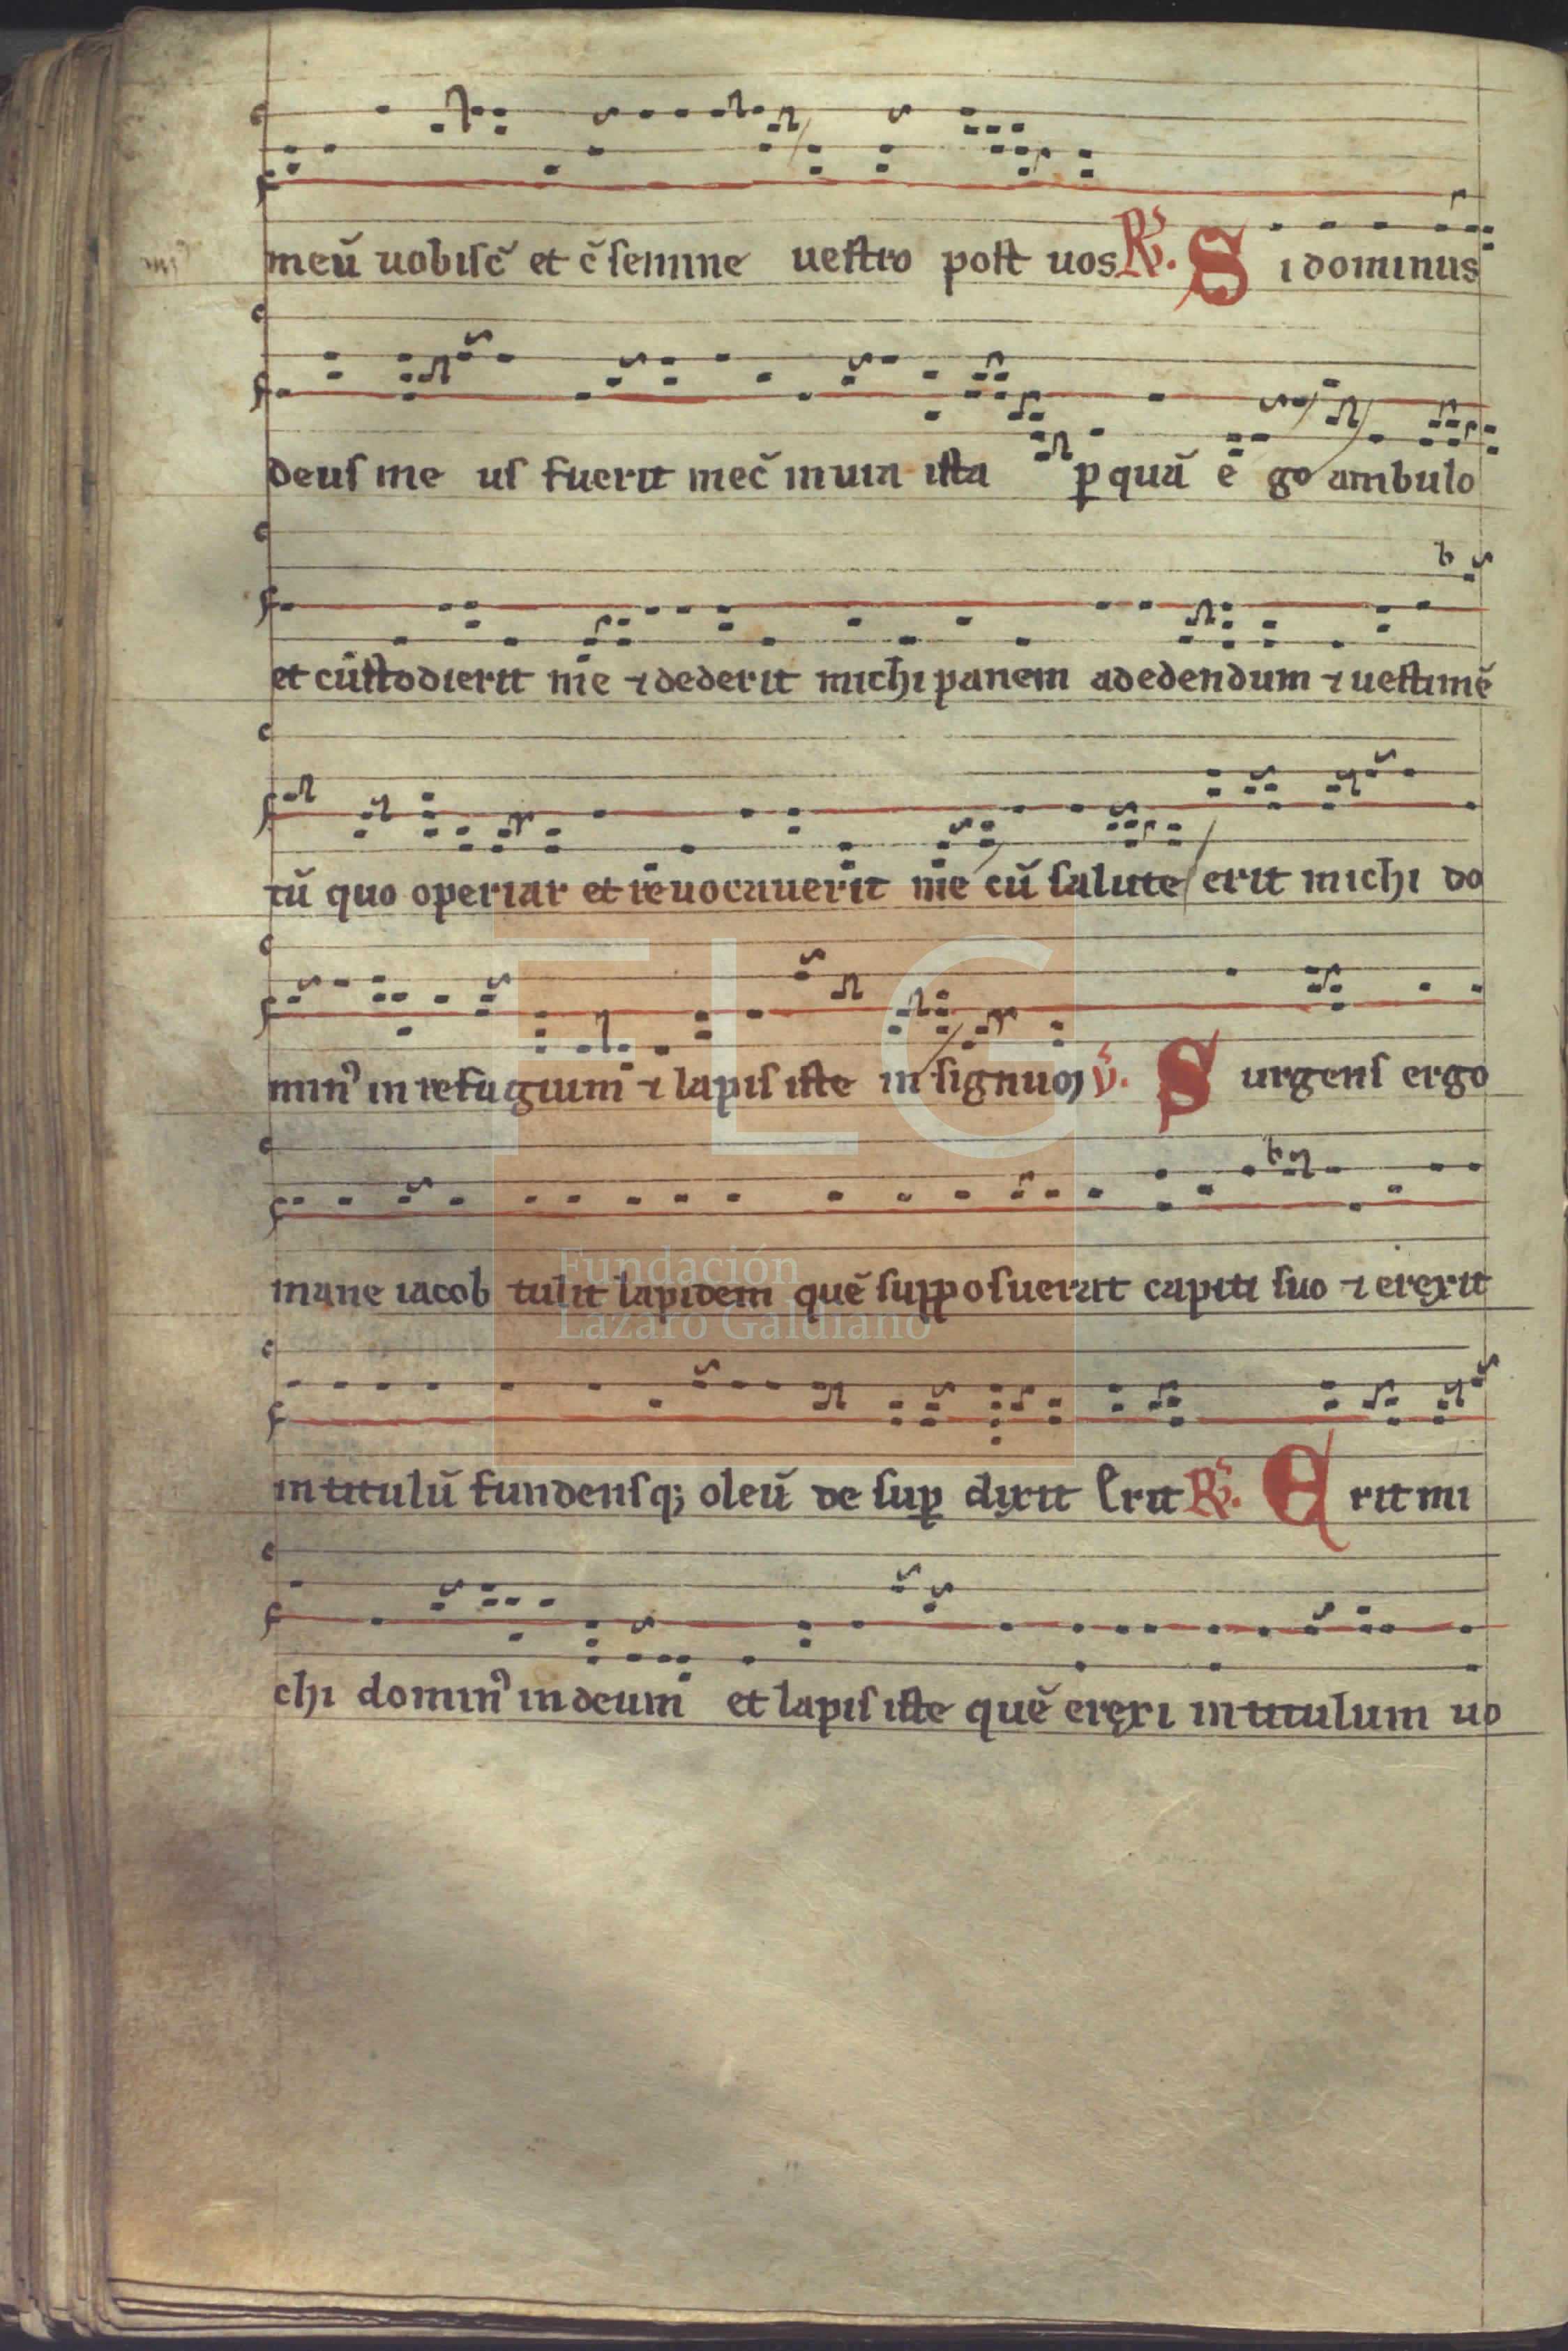 meū uobisc̄ et c̄ semine uestro post uos R̃. S i dominus
deus me us fuerit mec̄ in uia ista ꝑ quā e go ambulo
et custodierit me ⁊ dederit michi panem ad edendum ⁊ uestimē
tū quo operiar et reuocauerit me cū salute erit michi do
minꝰ in refugium ⁊ lapis iste in signum ṽ. S urgens ergo
mane iacob tulit lapidem quē supposuerat capiti suo ⁊ erexit
in titulū fundensq; oleū de suꝑ dixit Erit R̃. E rit mi
chi dominꝰ in deum et lapis iste quē erexi in titulum uo
FLG
Fundación
Lázaro Galdiano